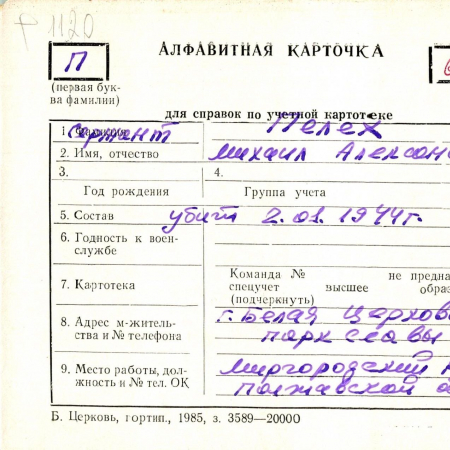 р 1120
П
АЛФАВИТНАЯ КАРТОЧКА
(первая бук-
ва фамилии)
для справок по учетной картотеке
1. Фамилия Сержант Пелех
2. Имя, отчество Михаил Алексан
3. 4.
Год рождения Группа учета
5. Состав убит 2.01.1944г.
6. Годность к воен-
службе
Команда № не предна
7. Картотека спецучет высшее образ
(подчеркнуть)
8. Адрес м-житель-
ства и № телефона
г. Белая Церков
парк славы
9. Место работы, дол-
жность и № тел. ОК
Миргородский
Полтавской о
Б. Церковь, гортип., 1985, з. 3589—20000